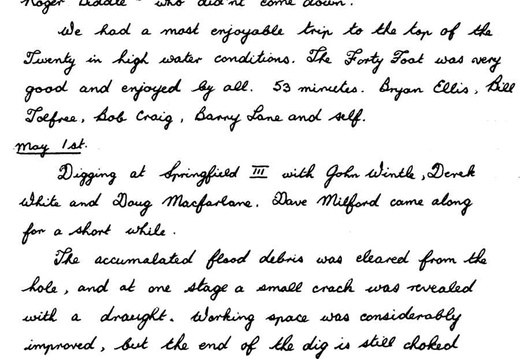 Roger Biddle - who didn't come down.
We had a most enjoyable trip to the top of the
Twenty in high water conditions. The Forty Foot was very
good and enjoyed by all. 53 minutes. Bryan Ellis, Bill
Tolfree, Bob Craig, Barry Lane and self.
May 1st.
Digging at Springfield III with John Wintle, Derek
White and Doug Macfarlane. Dave Milford came along
for a short while.
The accumalated flood debris was cleared from the
hole, and at one stage a small crack was revealed
with a draught. Working space was considerably
improved, but the end of the dig is still choked